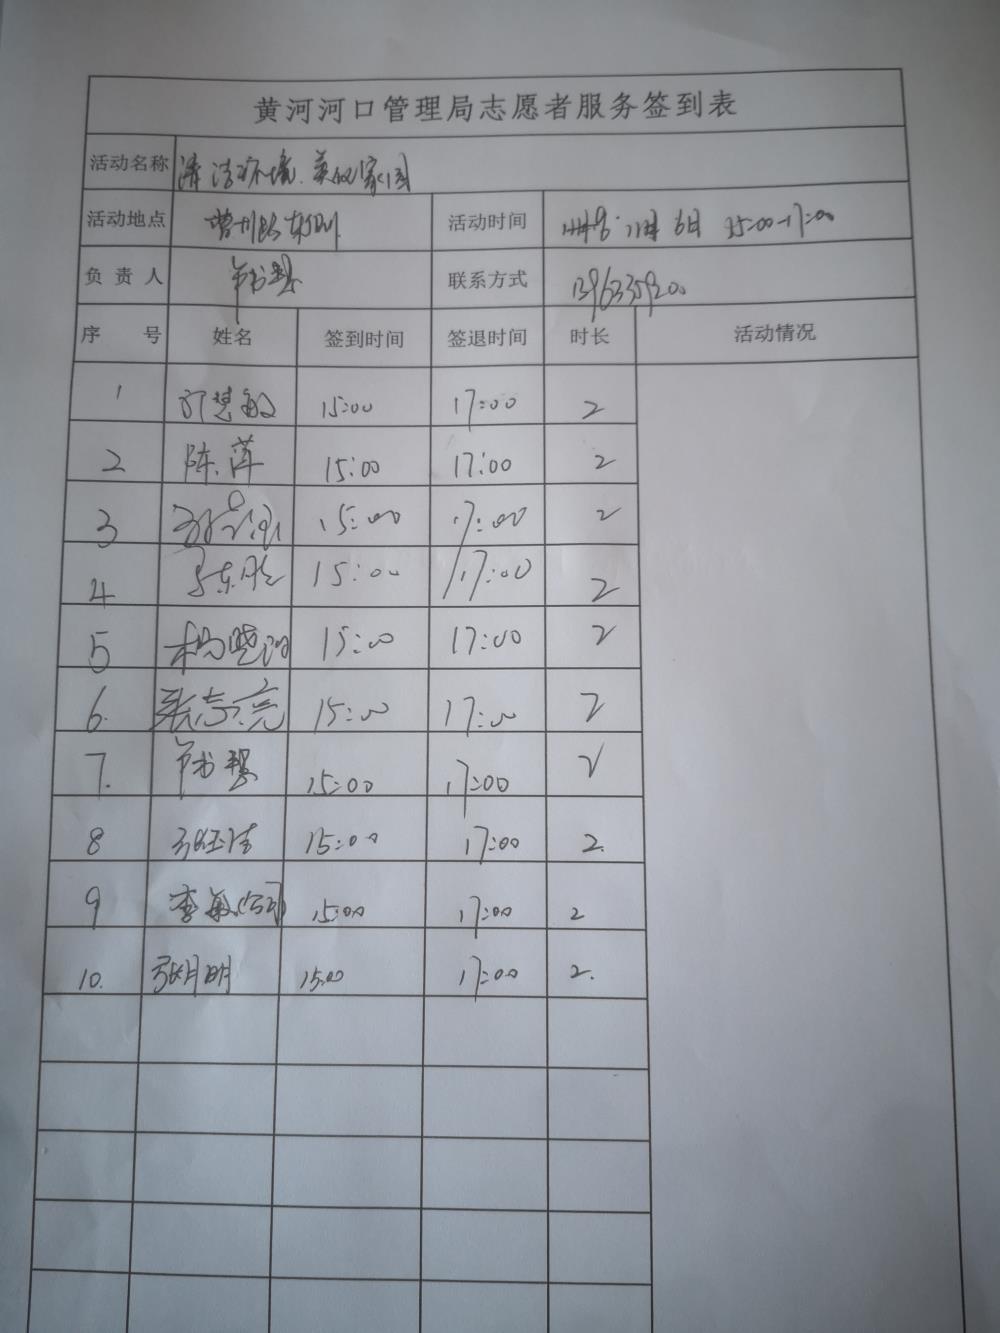 黄河河口管理局志愿者服务签到表
活动名称 清洁环境、美化家园
活动地点 活动时间 11月6日 15:00-17:00
负责人 联系方式
序号 姓名 签到时间 签退时间 时长 活动情况
1 15:00 17:00 2
2 陈萍 15:00 17:00 2
3 15:00 17:00 2
4 15:00 17:00 2
5 杨晓 15:00 17:00 2
6. 张志亮 15:00 17:00 2
7. 15:00 17:00 2
8 15:00 17:00 2.
9 李敏 15:00 17:00 2
10. 张月明 15:00 17:00 2.